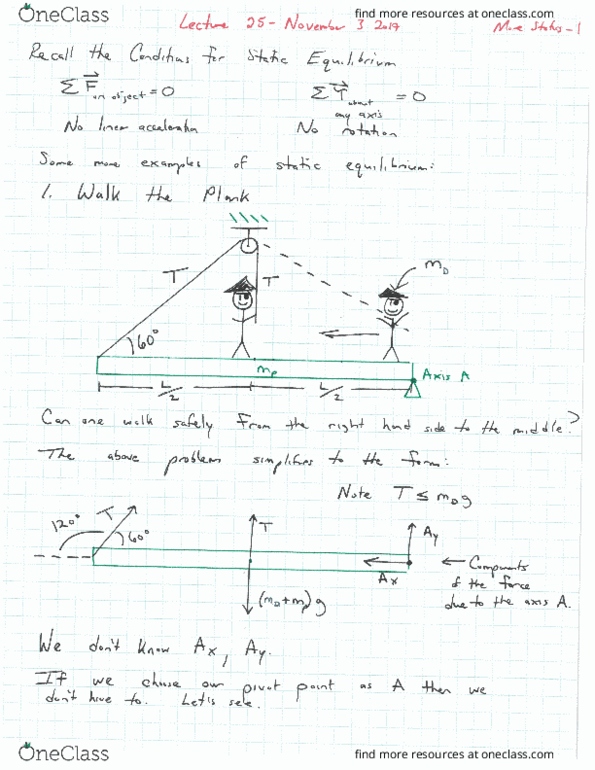 OneClass
find more resources at oneclass.com
Lecture 25 - November 3 2017
More Statics - 1
Recall the Conditions for Static Equilibrium
∑ F on object = 0
∑ τ about any axis = 0
No linear acceleration
No rotation
Some more examples of static equilibrium:
1. Walk the Plank
T
T
m_D
60°
m_p
Axis A
L/2
L/2
Can one walk safely from the right hand side to the middle?
The above problem simplifies to the form:
Note T ≤ m_D g
120°
T
60°
T
Ay
Ax
← Components
of the force
due to the axis A.
(m_D + m_p) g
We don't know Ax, Ay.
If we choose our pivot point as A then we
don't have to. Let's see.
OneClass
find more resources at oneclass.com